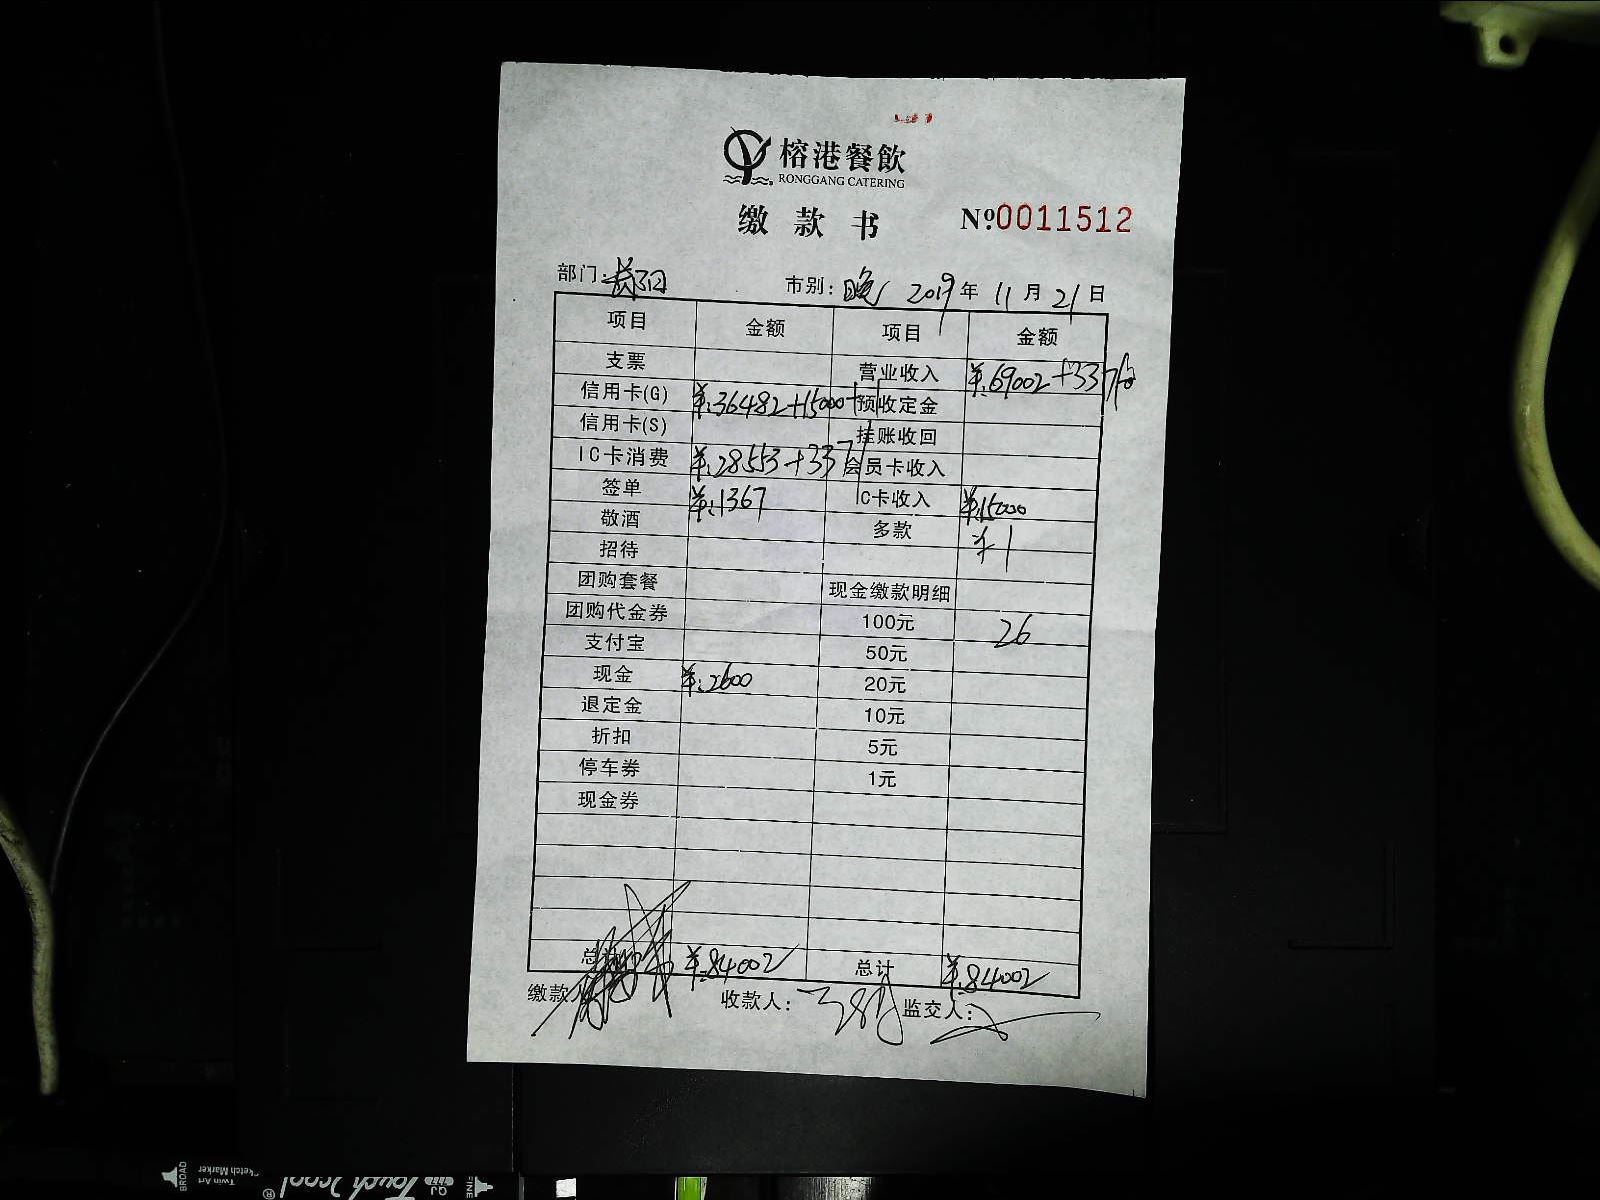 榕港餐飲
RONGGANG CATERING
缴款书 №0011512
部门: 市别:晚 2019年11月21日
项目 金额 项目 金额
支票 营业收入 ¥:69002+337
信用卡(G) ¥:36482+15000+1 预收定金
信用卡(S) 挂账收回
IC卡消费 ¥:28553+337 会员卡收入
签单 ¥:1367 IC卡收入 ¥:15000
敬酒 多款 ¥1
招待
团购套餐 现金缴款明细
团购代金券 100元 26
支付宝 50元
现金 ¥:2600 20元
退定金 10元
折扣 5元
停车券 1元
现金券
总计 ¥:84002 总计 ¥:84002
缴款人 收款人: 监交人:
BROAD
Sketch Marker
Twin Art
Touch 2cool
®
QJ